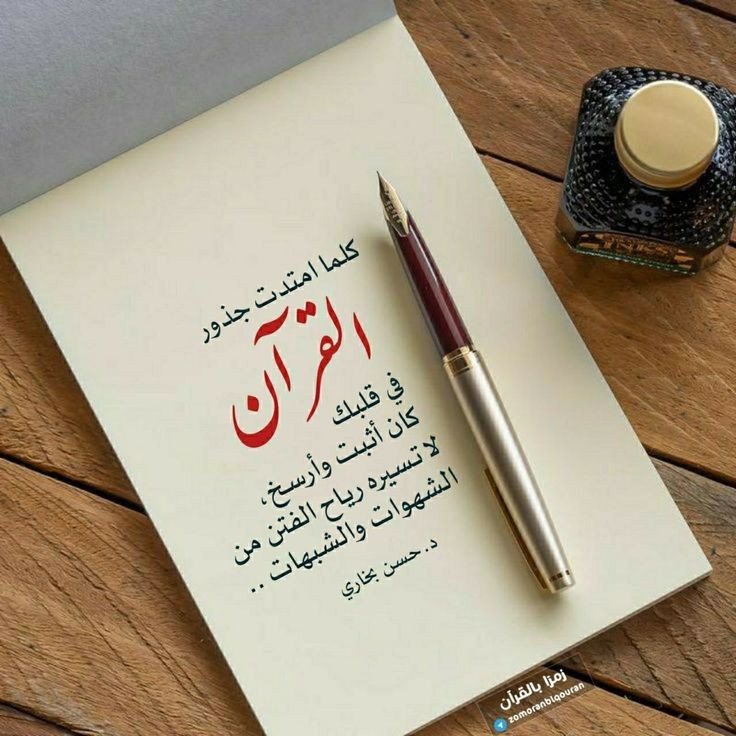 كلما امتدت جذور
القرآن
في قلبك
كان أثبت وأرسخ،
لا تسيره رياح الفتن من
الشهوات والشبهات ..
د. حسن بخاري
زمزا بالقرآن
zomoranblqouran